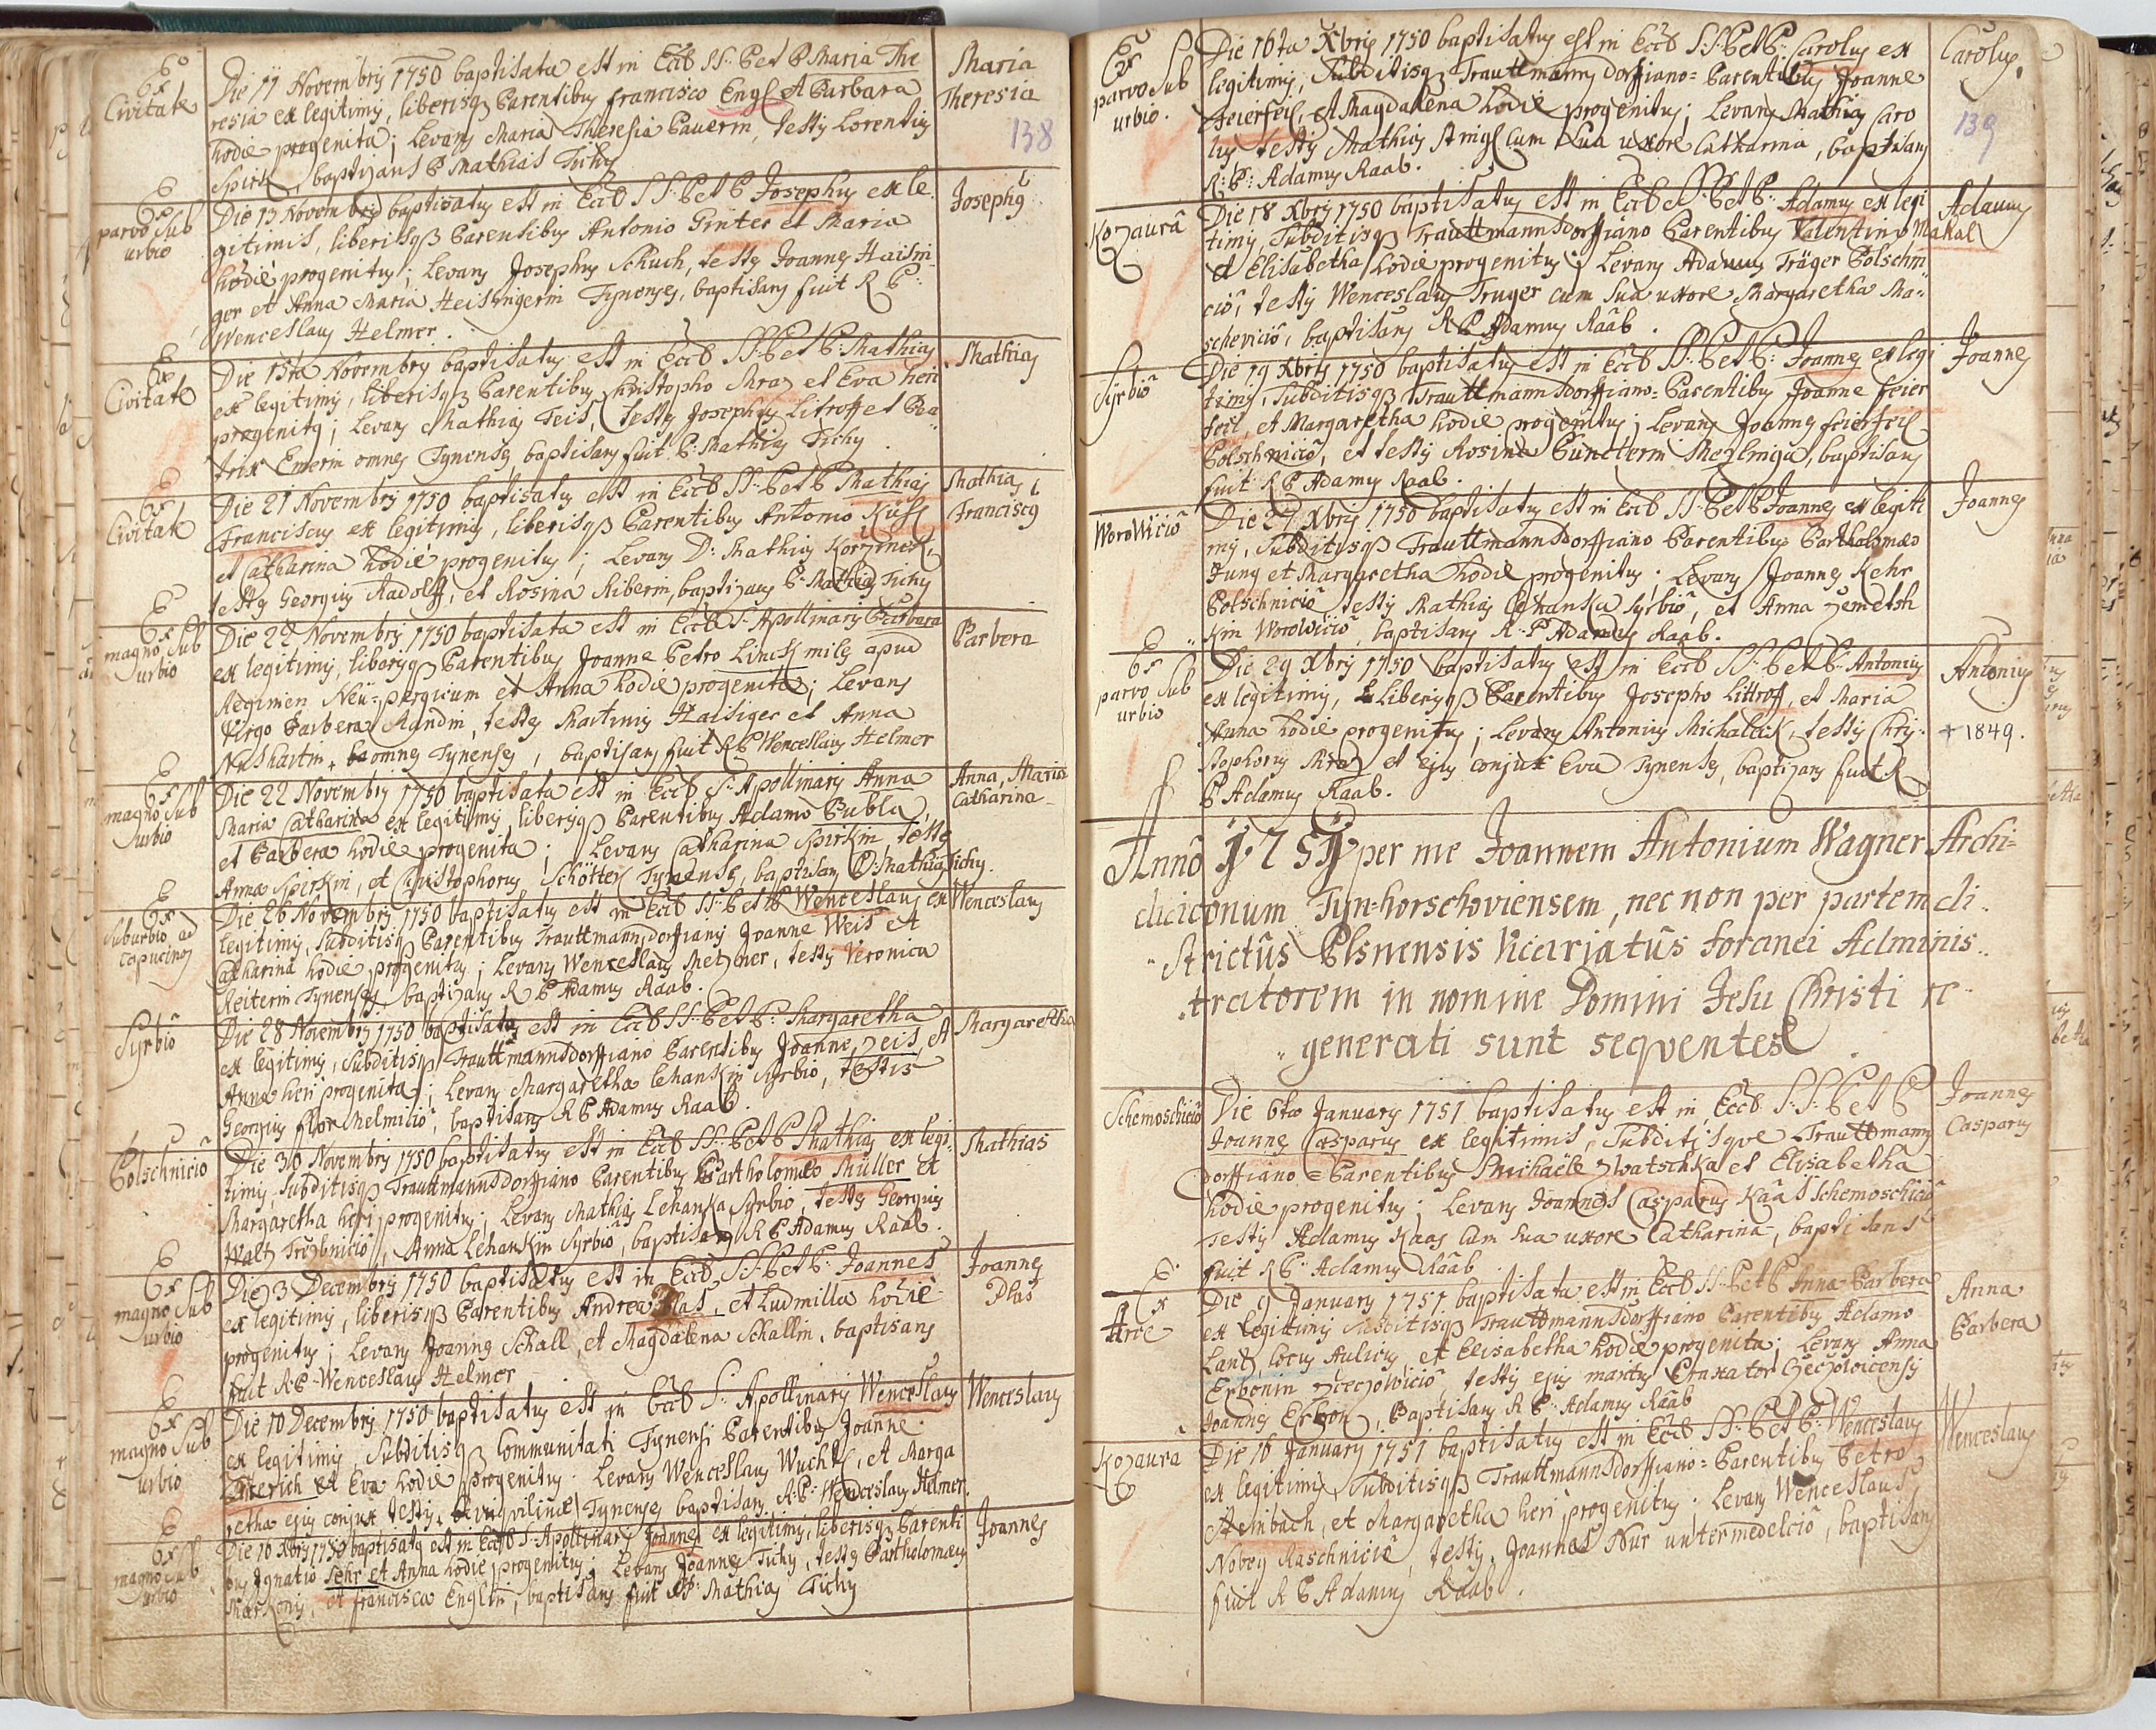 Ex Civitate
Die 11 Novembris 1750 baptisata est in Eccl SS: P et P Maria The
resia ex legitimis, liberisq3 Parentibus francisco Engl et Barbara
hodie progenita; Levans Maria Theresia Bauerin, testis Lorentius
Spirk, baptizans P Mathias Tichy
Maria
Theresia
138
Ex parvo Sub
urbio
Die 13 Novembris baptisatus est in Eccl SS: P et P Josephus ex le
gitimis, liberisq3 Parentibus Antonio Ginter et Maria
hodie progenitus; Levans Josephus Schuch, testes Joannes Haisin
ger et Anna Maria Heisingerin Tynenses, baptisans fuit R P:
Wenceslaus Helmer.
Josephus
Ex
Civitate
Die 15ta Novembris baptisatus est in Eccl SS: P et P: Mathias
ex legitimis, liberisq3 Parentibus Christopho Mraz et Eva heri
progenitus; Levans Mathias Teis, testes Josephus Litroff et Bea
trix Emerin omnes Tynenses, baptisans fuit P: Mathias Tichy.
Mathias
Ex
Civitate
Die 21 Novembris 1750 baptisatus est in Eccl SS: P et P Mathias
Franciscus ex legitimis, liberisq3 Parentibus Antonio
et Catharina hodie progenitus; Levans D: Mathias
testes Georgius Radolff, et Rosina Riberin, baptizans P: Mathias Tichy
Mathias
Franciscus
Ex
magno Sub
urbio
Die 22 Novembris 1750 baptisata est in Eccl S: Apollinaris Barbara
ex legitimis, liberisq3 Parentibus Joanne Petro Linck miles apud
Regimen Neü-pergicum et Anna hodie progenita; Levans
Virgo Barbera, testes Martinus Haisiger et Anna
omnes Tynenses, baptisans fuit R P Wenceslaus Helmer
Barbera
Ex
magno Sub
urbio
Die 22 Novembris 1750 baptisata est in Eccl S: Apollinaris Anna
Maria Catharina ex legitimis, liberisq3 Parentibus Adamo Bubla
et Barbera hodie progenita; Levans Catharina Spirkin, testes
Anna Spirkin, et Christophorus Schötterl Tynenses, baptisans P: Mathias Tichy.
Anna, Maria
Catharina
Ex
Suburbio ad
capucinos
Die 26 Novembris 1750 baptisatus est in Eccl SS: P et P Wenceslaus ex
legitimis, Subditisq3 Parentibus Trauttmannsdorffianis Joanne Weis et
Catharina hodie progenitus; Levans Wenceslaus Metzner, testis Veronica
Reiterin Tynenses, baptizans R P Adamus Raab.
Wenceslaus
Syrbio
Die 28 Novembris 1750 baptisata est in Eccl SS: P et P: Margaretha
ex legitimis, Subditisq3 Trauttmannsdorffiano Parentibus Joanne Zeis, et
Anna heri progenita; Levans Margaretha Lehankin Syrbio, testis
Georgius Flor Melmicio, baptisans R P Adamus Raab.
Margaretha
Polschnicio
Die 30 Novembris 1750 baptisatus est in Eccl SS: P et P Mathias ex legi
timis, Subditisq3 Trauttmannsdorffiano Parentibus Bartholomeo Müller et
Margaretha heri progenitus; Levans Mathias Lehanka Syrbio, testes Georgius
Waltz, Anna Lehankin Syrbio, baptisans R P Adamus Raab.
Mathias
Ex
magno Sub
urbio
Die 3 Decembris 1750 baptisatus est in Eccl SS: P et P: Joannes
ex legitimis, liberisq3 Parentibus Andrea Plas, et Ludmilla hodie
progenitus; Levans Joannes Schall, et Magdalena Schallin, baptisans
fuit R: P: Wenceslaus Helmer
Joannes
Plas
Ex
magno Sub
urbio
Die 10 Decembris 1750 baptisatus est in Eccl S: Apollinaris Wenceslaus
ex legitimis, Subditisq3 Communitati Tynensi Parentibus Joanne
et Eva hodie progenitus. Levans Wenceslaus Wuchtl, et Marga
retha ejus conjux testis, Tynenses baptisans R: P: Wenceslaus Helmer.
Wenceslaus
Ex
magno Sub
urbio
Die 16 Xbris 1750 baptisatus est in Eccl S: Apollinaris Joannes ex legitimis, liberisq3 Parenti
bus Ignatio Sehr et Anna hodie progenitus; Levans Joannes Tichy, testes Bartholomeus
Markoni, et francisca Englin, baptisans fuit R P: Mathias Tichy
Joannes
Ex
parvo Sub
urbio.
Die 16ta Xbris 1750 baptisatus est in Eccl S: S: P et P: Carolus ex
legitimis, Subditisq3 Trauttmannsdorffiano= Parentibus Joanne
Feierfeil, et Magdalena hodie progenitus; Levans Mathias Caro
lus testis Mathias Strigl cum Sua uxore Catharina, baptisans
R: P: Adamus Raab.
Carolus
139
Kozaura
Die 18 Xbris 1750 baptisatus est in Eccl SS: P et P: Adamus ex legi
timis, Subditisq3 Trauttmannsdorffiano Parentibus Valentino Makal
et Elisabetha hodie progenitus; Levans Adamus Träger Polschni
cio, testis Wenceslaus Truger cum Sua uxore Margaretha Ma=
schevicio, baptisans R P Adamus Raab.
Adamus
Syrbio
Die 19 Xbris 1750 baptisatus est in Eccl SS: P et P: Joannes ex legi
timis, Subditisq3 Trauttmannsdorffiano= Parentibus Joanne feier
feil, et Margaretha hodie progenitus; Levans Joannes feierfeil
Polschnicio, et testis Rosina, baptisans
fuit R P Adamus Raab.
Joannes
Worowicio
Die 27 Xbris 1750 baptisatus est in Eccl SS: P et P Joannes ex legiti
mis, Subditisq3 Trauttmannsdorffiano Parentibus Bartholomæo
Jung et Margaretha hodie progenitus; Levans Joannes Kehr
Polschnicio testis Mathias Lehanka Syrbio, et Anna Zemetsh
kin Worowicio, baptisans R: P Adamus Raab.
Joannes
Ex
parvo Sub
urbio
Die 29 Xbris 1750 baptisatus est in Eccl SS: P et P: Antonius
ex legitimis, Liberisq3 Parentibus Josepho Littroff, et Maria
Anna hodie progenitus; Levans Antonius Michalek, testis Chry:
stophorus Mraz et ejus conjux Eva Tynenses, baptizans fuit R
P Adamus Raab.
Antonius
+ 1849.
Anno 1751 per me Joannem Antonium Wagner Archi=
diaconum Tyn=horschoviensem, nec non per partem di..
strictûs Plsnensis Vicariatûs foranei Adminis..
tratorem in nomine Domini Jesu Christi re..
generati sunt seqventes
Schemoschicio
Die 6ta January 1751 baptisatus est in Eccl: S: S: P et P
Joannes Casparus ex legitimis, Subditisqve Trauttmanns
dorffiano= Parentibus Michaële Zwatschka et Elisabetha
hodie progenitus; Levans Joannes Casparus Kaas Schemoschicio
Testis Adamus Kaas cum Sua uxore Catharina, baptisans
fuit R P: Adamus Raab
Joannes
Casparus
Ex
Arce
Die 9 January 1751 baptisata est in Eccl SS: P et P Anna Barbera
ex Legitimis Subditisq3 Trauttmannsdorffiano Parentibus Adamo
Lantz, Aulicus et Elisabetha hodie progenita; Levans Anna
Erbonin, testis ejus maritus
Joannes Erbon, Baptisans R P: Adamus Raab
Anna
Barbera
Kozaura
Die 16 January 1751 baptisatus est in Eccl SS: P et P: Wenceslaus
ex legitimis, Subditisq3 Trauttmannsdorffiano= Parentibus Petro
Steinbach, et Margaretha heri progenitus; Levans Wenceslaus
Nobey Raschnicio, testis, Joannes Nur untermedelcio, baptisans
fuit R P Adamus Raab.
Wenceslaus